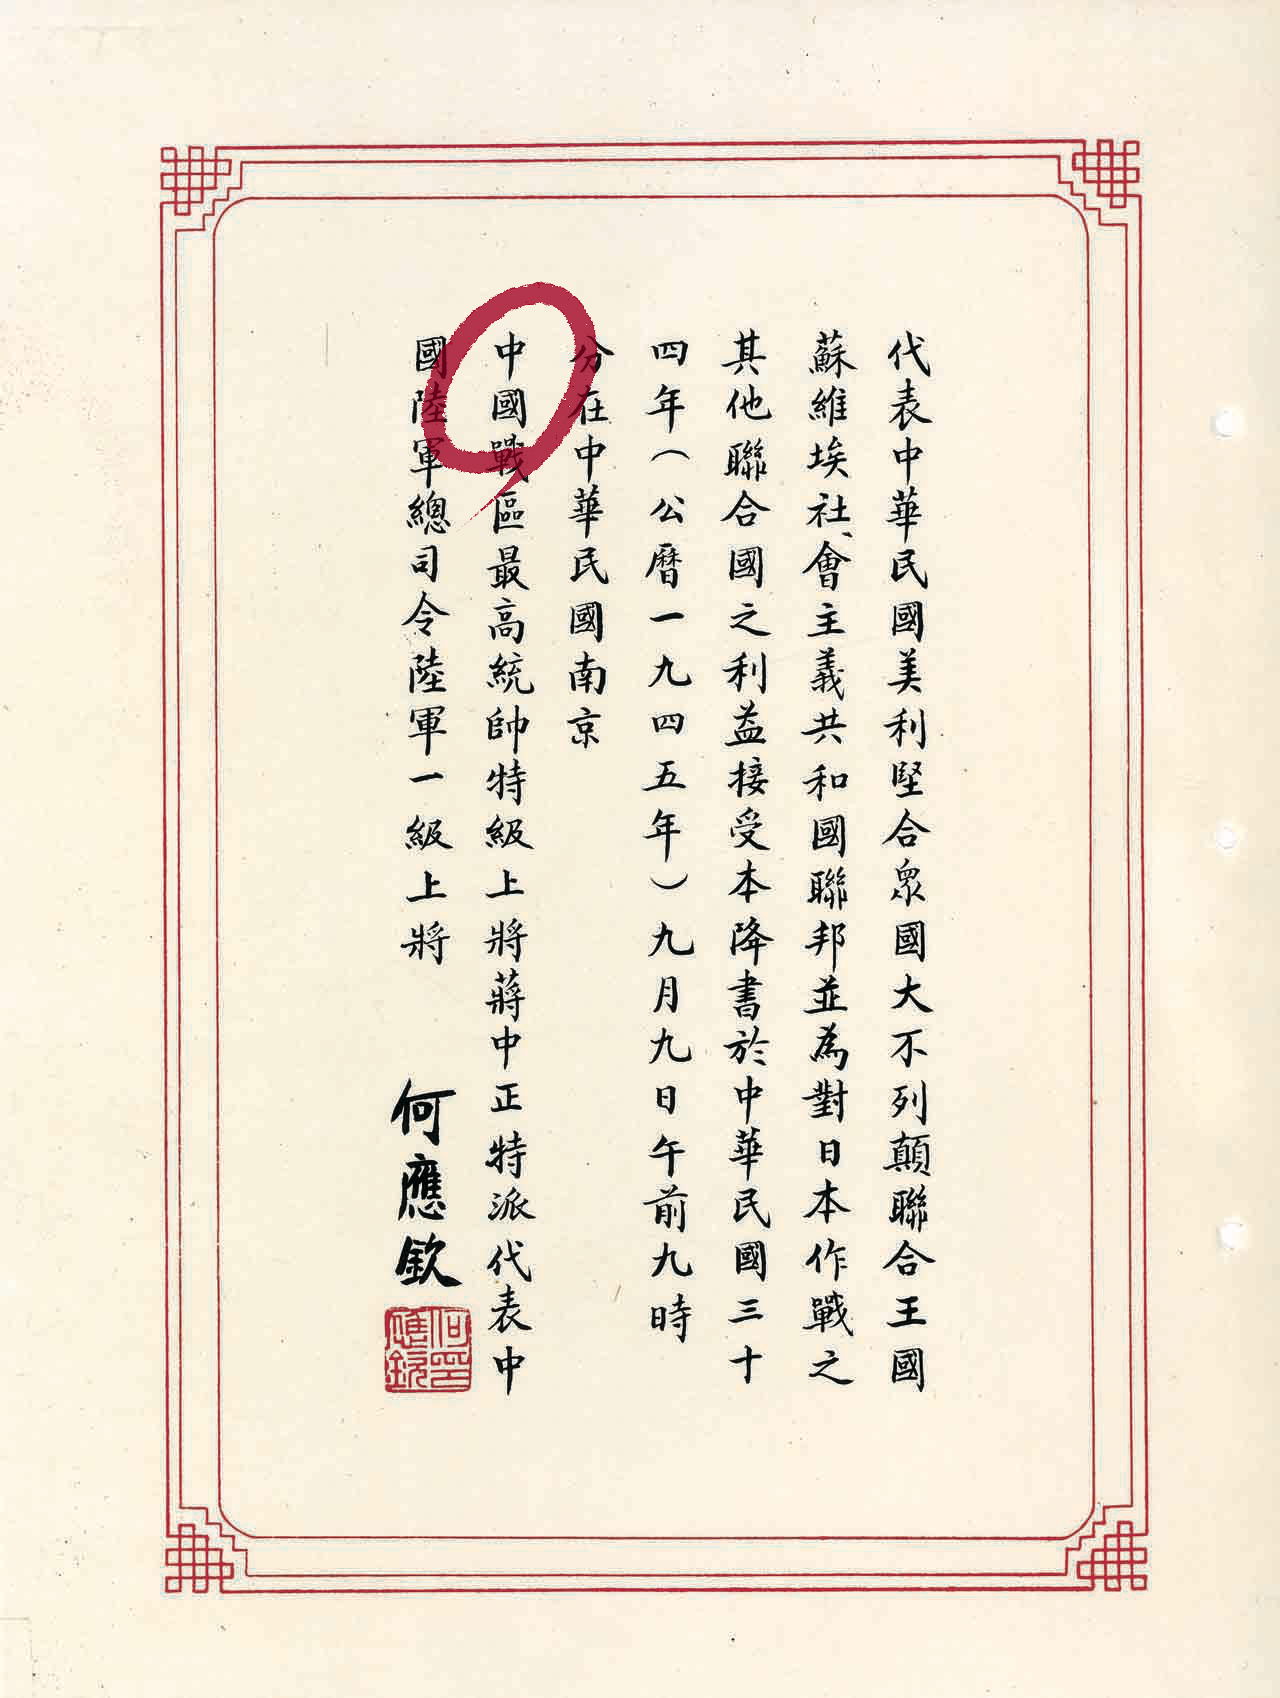 代表中華民國美利堅合眾國大不列顛聯合王國
蘇維埃社會主義共和國聯邦並為對日本作戰之
其他聯合國之利益接受本降書於中華民國三十
四年（公曆一九四五年）九月九日午前九時
分在中華民國南京
中國戰區最高統帥特級上將蔣中正特派代表中
國陸軍總司令陸軍一級上將 何應欽
何應欽印